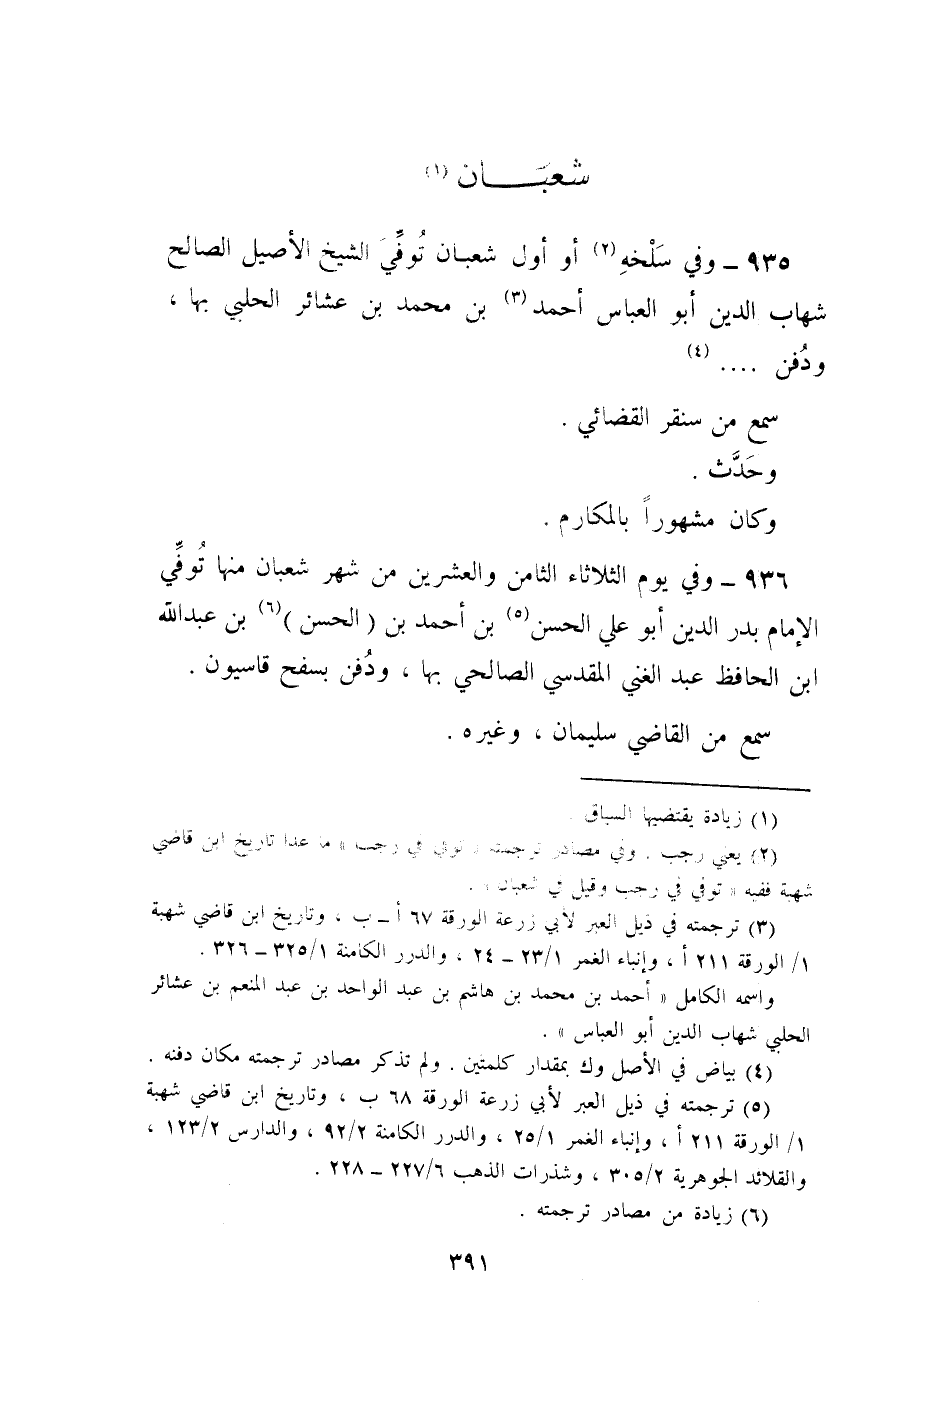 شعبَـــان (١)
٩٣٥ ـ وفي سَلْخهِ(٢) أو أول شعبان تُوفِّيَ الشيخ الأصيل الصالح
شهاب الدين أبو العباس أحمد(٣) بن محمد بن عشائر الحلبي بها ،
ودُفن .... (٤)
سمع من سنقر القضائي .
وحَدَّث .
وكان مشهوراً بالمكارم .
٩٣٦ ـ وفي يوم الثلاثاء الثامن والعشرين من شهر شعبان منها تُوفِّي
الإمام بدر الدين أبو علي الحسن(٥) بن أحمد بن ( الحسن )(٦) بن عبدالله
ابن الحافظ عبد الغني المقدسي الصالحي بها ، ودُفن بسفح قاسيون .
سمع من القاضي سليمان ، وغيره .
(١) زيادة يقتضيها السياق .
(٢) يعني رجب . وفي مصادر ترجمته « توفي في رجب » ما عدا تاريخ ابن قاضي
شهبة ففيه « توفي في رجب وقيل في شعبان » .
(٣) ترجمته في ذيل العبر لأبي زرعة الورقة ٦٧ أ ـ ب ، وتاريخ ابن قاضي شهبة
١/ الورقة ٢١١ أ ، وإنباء الغمر ٢٣/١ ـ ٢٤ ، والدرر الكامنة ٣٢٥/١ ـ ٣٢٦ .
واسمه الكامل « أحمد بن محمد بن هاشم بن عبد الواحد بن عبد المنعم بن عشائر
الحلبي شهاب الدين أبو العباس » .
(٤) بياض في الأصل وك بمقدار كلمتين . ولم تذكر مصادر ترجمته مكان دفنه .
(٥) ترجمته في ذيل العبر لأبي زرعة الورقة ٦٨ ب ، وتاريخ ابن قاضي شهبة
١/ الورقة ٢١١ أ ، وإنباء الغمر ٢٥/١ ، والدرر الكامنة ٩٢/٢ ، والدارس ١٢٣/٢ ،
والقلائد الجوهرية ٣٠٥/٢ ، وشذرات الذهب ٢٢٧/٦ ـ ٢٢٨ .
(٦) زيادة من مصادر ترجمته .
٣٩١